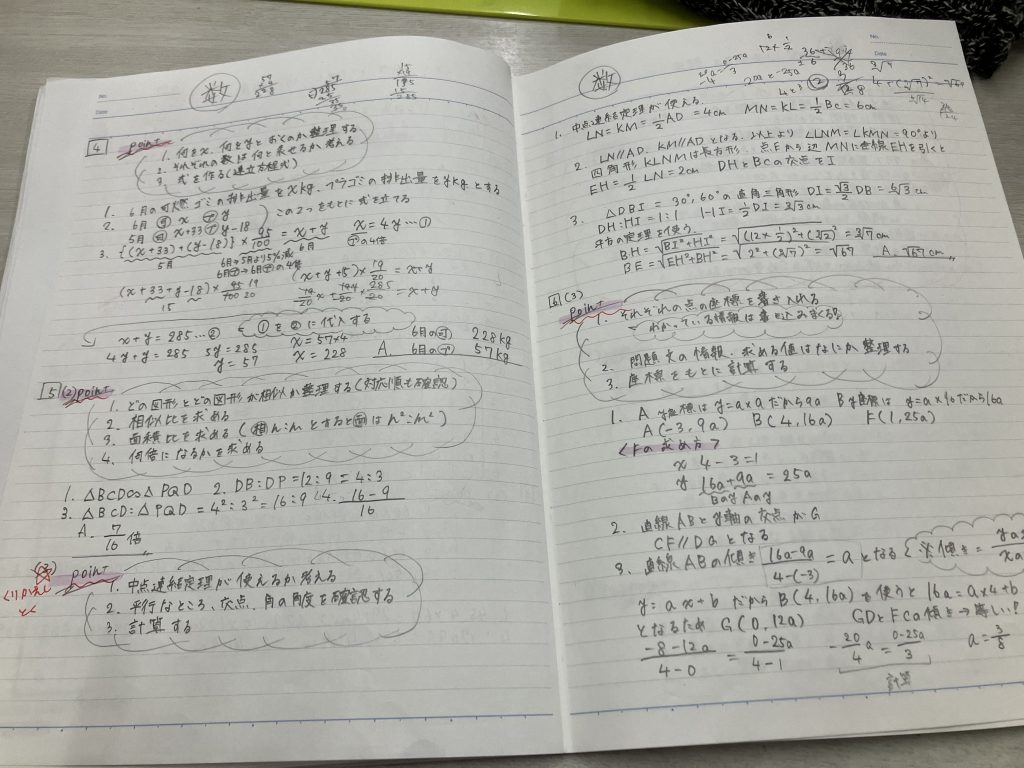 数
4 point
1. 何をx、何をyとおくのか整理する
2. それぞれの数は何と表せるか考える
3. 式を作る(連立方程式)
1. 6月の可燃ゴミの排出量をxkg、プラゴミの排出量をykgとする
2. 6月 可 x プ y
5月 可 x+33 プ y-18
この2つをもとに式を立てる
3. {(x+33)+(y-18)}×95/100=x+y x=4y…①
5月 6月 プの4倍
6月→5月より5%減
6月可→6月プの4倍
(x+33+y-18)×95/100 19/20 (x+y+15)×19/20=x+y
15 19/20x+19/20y+285/20=x+y
x+y=285…② ①を②に代入する
4y+y=285 5y=285 x=57×4 A. 6月の可 228kg
y=57 x=228 6月のプ 57kg
5 (2) point
1. どの図形とどの図形が相似か整理する(対応順も確認)
2. 相似比を求める
3. 面積比を求める(相n:mとすると面はn²:m²)
4. 何倍になるかを求める
1. △BCD∽△PQD 2. DB:DP=12:9=4:3
3. △BCD:△PQD=4²:3²=16:9 4. 16-9/16
A. 7/16倍
(3)
point
くりかえし
とく
1. 中点連結定理が使えるか考える
2. 平行なところ、交点、角の角度を確認する
3. 計算する
No.
Date
1. 中点連結定理が使える。
LN=KM=1/2AD=4cm MN=KL=1/2BC=6cm
2. LN//AD、KM//ADとなる。以上より∠LNM=∠KMN=90°より
四角形KLNMは長方形 点Eから辺MNに垂線EHを引くと
EH=1/2LN=2cm DHとBCの交点をI
3. △DBI=30°,60°の直角三角形 DI=√3/2DB=4√3cm
DH:HI=1:1 HI=1/2DI=2√3cm
三平方の定理を使う
BH=√BI²+HI²=√(12×1/2)²+(2√3)²
BE=√EH²+BH²=√2²+(3√7)²=√67 A. √67cm
6 (3)
point
1. それぞれの点の座標を書き入れる
わかっている情報は書き込みまくる!
2. 問題文の情報、求める値はなにか整理する
3. 座標をもとに計算する
1. A y座標はy=a×9だから9a B y座標はy=a×16だから16a
A(-3,9a) B(4,16a) F(1,25a)
<Fの求め方>
x 4-3=1
y 16a+9a=25a
Bのy Aのy
2. 直線ABとy軸の交点がG
CF//DGとなる
3. 直線ABの傾き 16a-9a/4-(-3)=aとなる
y=ax+bだからB(4,16a)を使うと16a=a×4+b
となるためG(0,12a) GDとFCの傾き→等しい!
-8-12a/4-0=0-25a/4-1 -20/4a=0-25a/3 a=3/8
計算